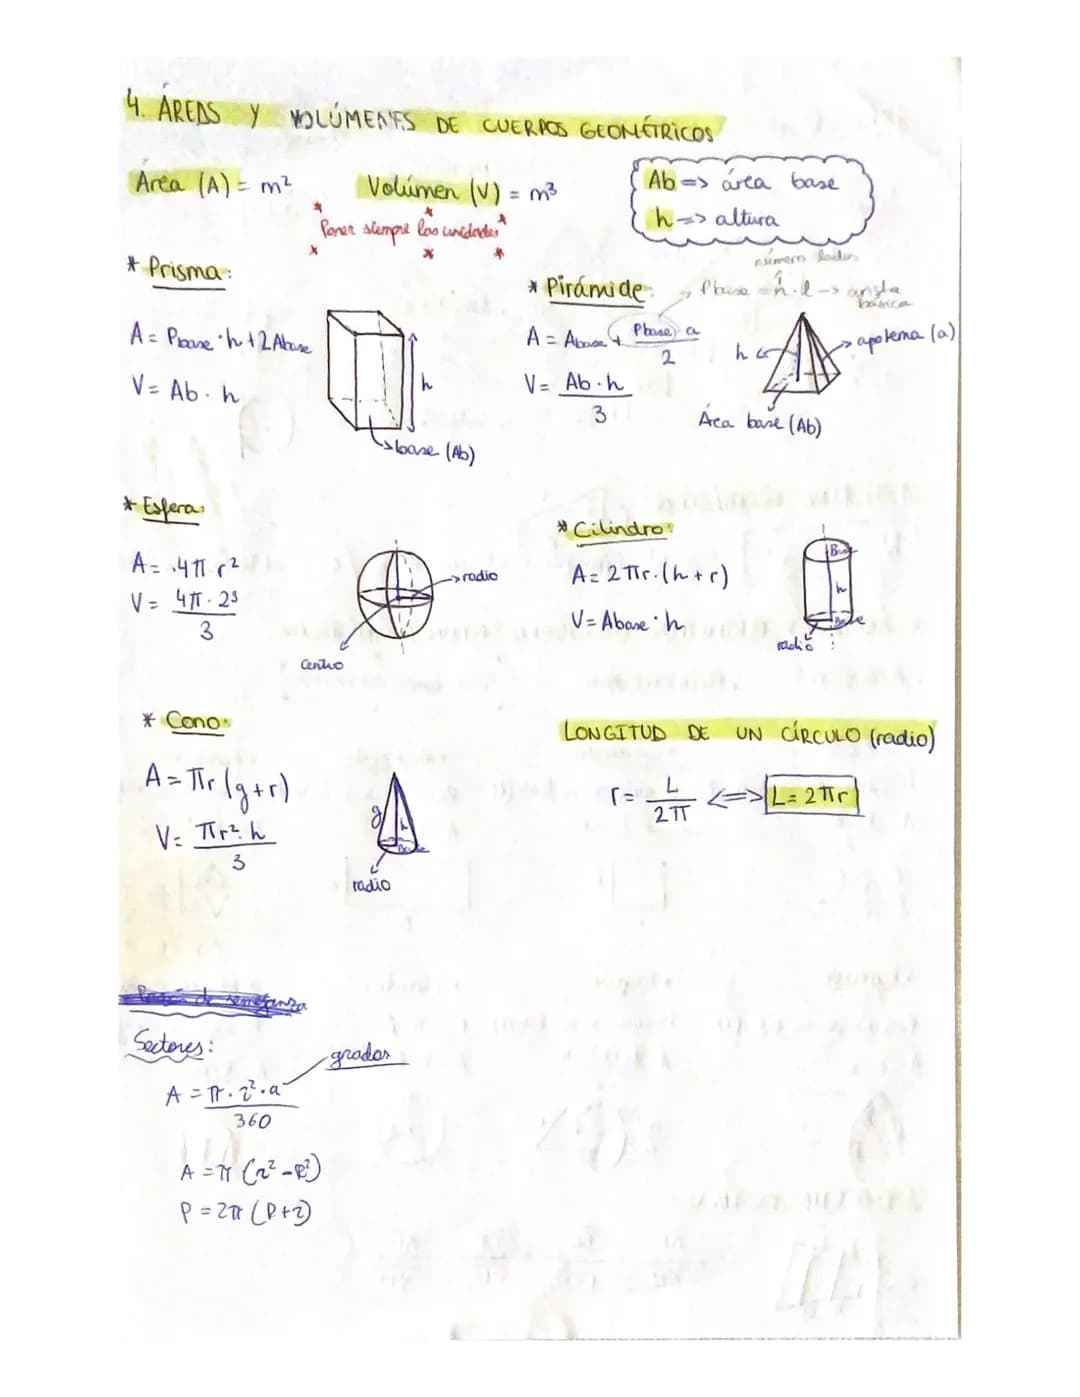 4. ÁREAS Y VOLÚMENES DE CUERPOS GEOMÉTRICOS
Área (A) = m²
Volúmen (V) = m³
Ab => área base
h => altura
Poner siempre las unidades
* Prisma:
A = Pbase · h + 2 Abase
V = Ab · h
h
base (Ab)
número lados
* Pirámide:
Pbase = n · l -> arista básica
A = Abase + Pbase · a / 2
V = Ab · h / 3
h
apotema (a)
Área base (Ab)
* Esfera:
A = 4π · r²
V = 4π · 2³ / 3
radio
Centro
* Cilindro:
A = 2πr · (h + r)
V = Abase · h
Base
h
Base
radio
* Cono:
A = πr (g + r)
V = πr² · h / 3
g
h
Base
radio
LONGITUD DE UN CÍRCULO (radio)
r = L / 2π <=> L = 2πr
de semejanza
Sectores:
grados
A = π · r² · a / 360
A = π (r² - R²)
P = 2π (R + r)